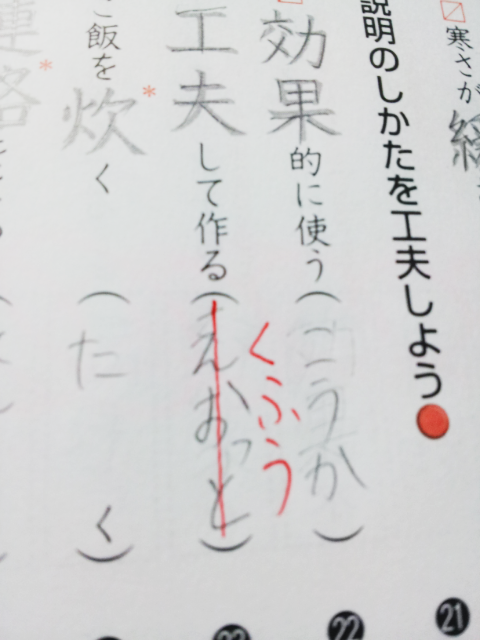 寒さが
21
説明のしかたを工夫しよう
効果的に使う(こうか)
22
くふう
工夫して作る(えおっと)
23
ご飯を炊く(たく)
連絡